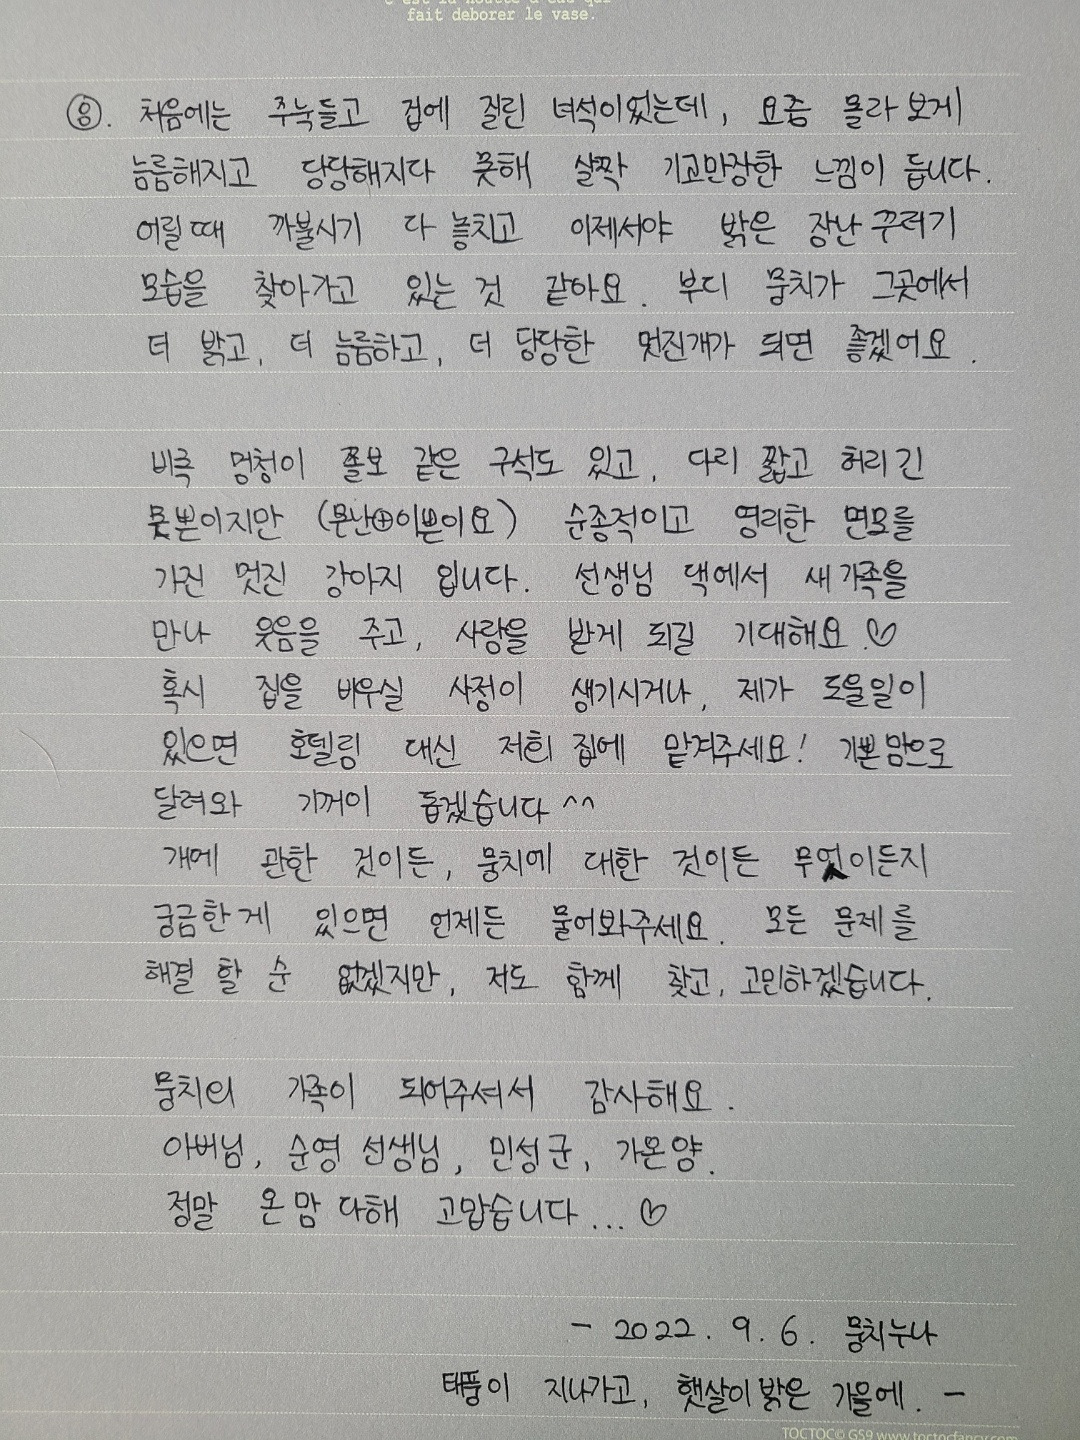 fait deborer le vase.
⑧. 처음에는 주눅들고 겁에 질린 녀석이었는데, 요즘 몰라보게
늠름해지고 당당해지다 못해 살짝 기고만장한 느낌이 듭니다.
어릴때 까불시기 다 놓치고 이제서야 밝은 장난꾸러기
모습을 찾아가고 있는 것 같아요. 부디 뭉치가 그곳에서
더 밝고, 더 늠름하고, 더 당당한 멋진개가 되면 좋겠어요.
비록 멍청이 쫄보 같은 구석도 있고, 다리 짧고 허리 긴
못쁜이지만 (못난⊕이쁜이요) 순종적이고 영리한 면모를
가진 멋진 강아지 입니다. 선생님 댁에서 새가족을
만나 웃음을 주고, 사랑을 받게 되길 기대해요.♡
혹시 집을 비우실 사정이 생기시거나, 제가 도울일이
있으면 호텔링 대신 저희 집에 맡겨주세요! 기쁜맘으로
달려와 기꺼이 돕겠습니다^^
개에 관한 것이든, 뭉치에 대한 것이든 무엇이든지
궁금한게 있으면 언제든 물어봐주세요. 모든 문제를
해결 할 순 없겠지만, 저도 함께 찾고, 고민하겠습니다.
뭉치의 가족이 되어주셔서 감사해요.
아버님, 순영 선생님, 민성군, 가온양.
정말 온맘 다해 고맙습니다... ♡
- 2022. 9. 6. 뭉치누나
태풍이 지나가고, 햇살이 밝은 가을에. -
TOCTOC© GS9 www.toctocfancy.com